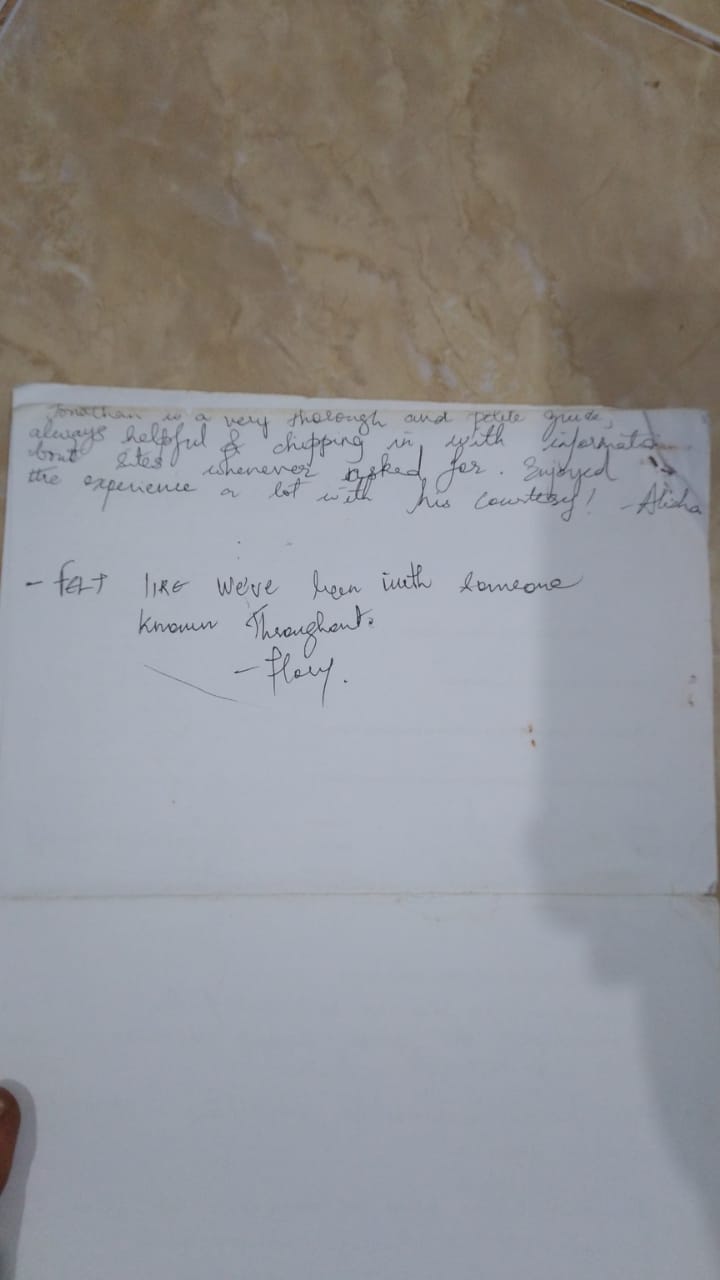 Jonathan is a very thorough and polite guide,
always helpful & chipping in with information
bout sites whenever asked for. Enjoyed
the experience a lot with his courtesy! - Alisha
- FELT LIKE We've been with someone
known Throughout.
- Flory.